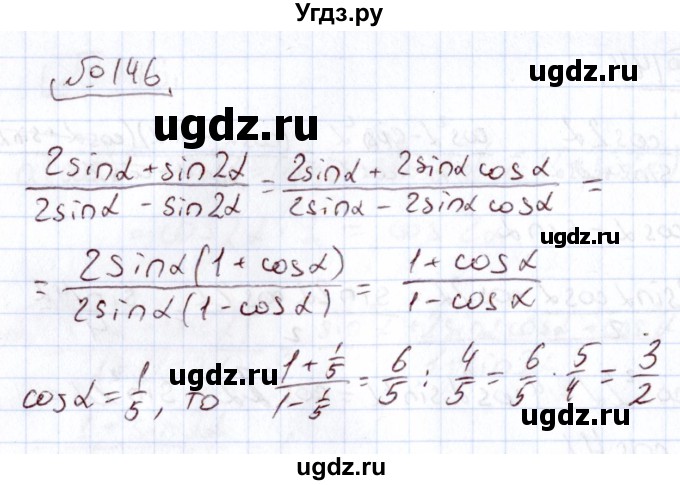 Угдз.ру
№146
ugdz.ru ugdz.ru
(2sinα + sin2α)/(2sinα - sin2α) = (2sinα + 2sinα cosα)/(2sinα - 2sinα cosα) =
ugdz.ru
= (2sinα(1 + cosα))/(2sinα(1 - cosα)) = (1 + cosα)/(1 - cosα)
ugdz.ru ugdz.ru
cosα = 1/5, то (1 + 1/5)/(1 - 1/5) = 6/5 : 4/5 = 6/5 · 5/4 = 3/2
ugdz.ru ugdz.ru
ugdz.ru